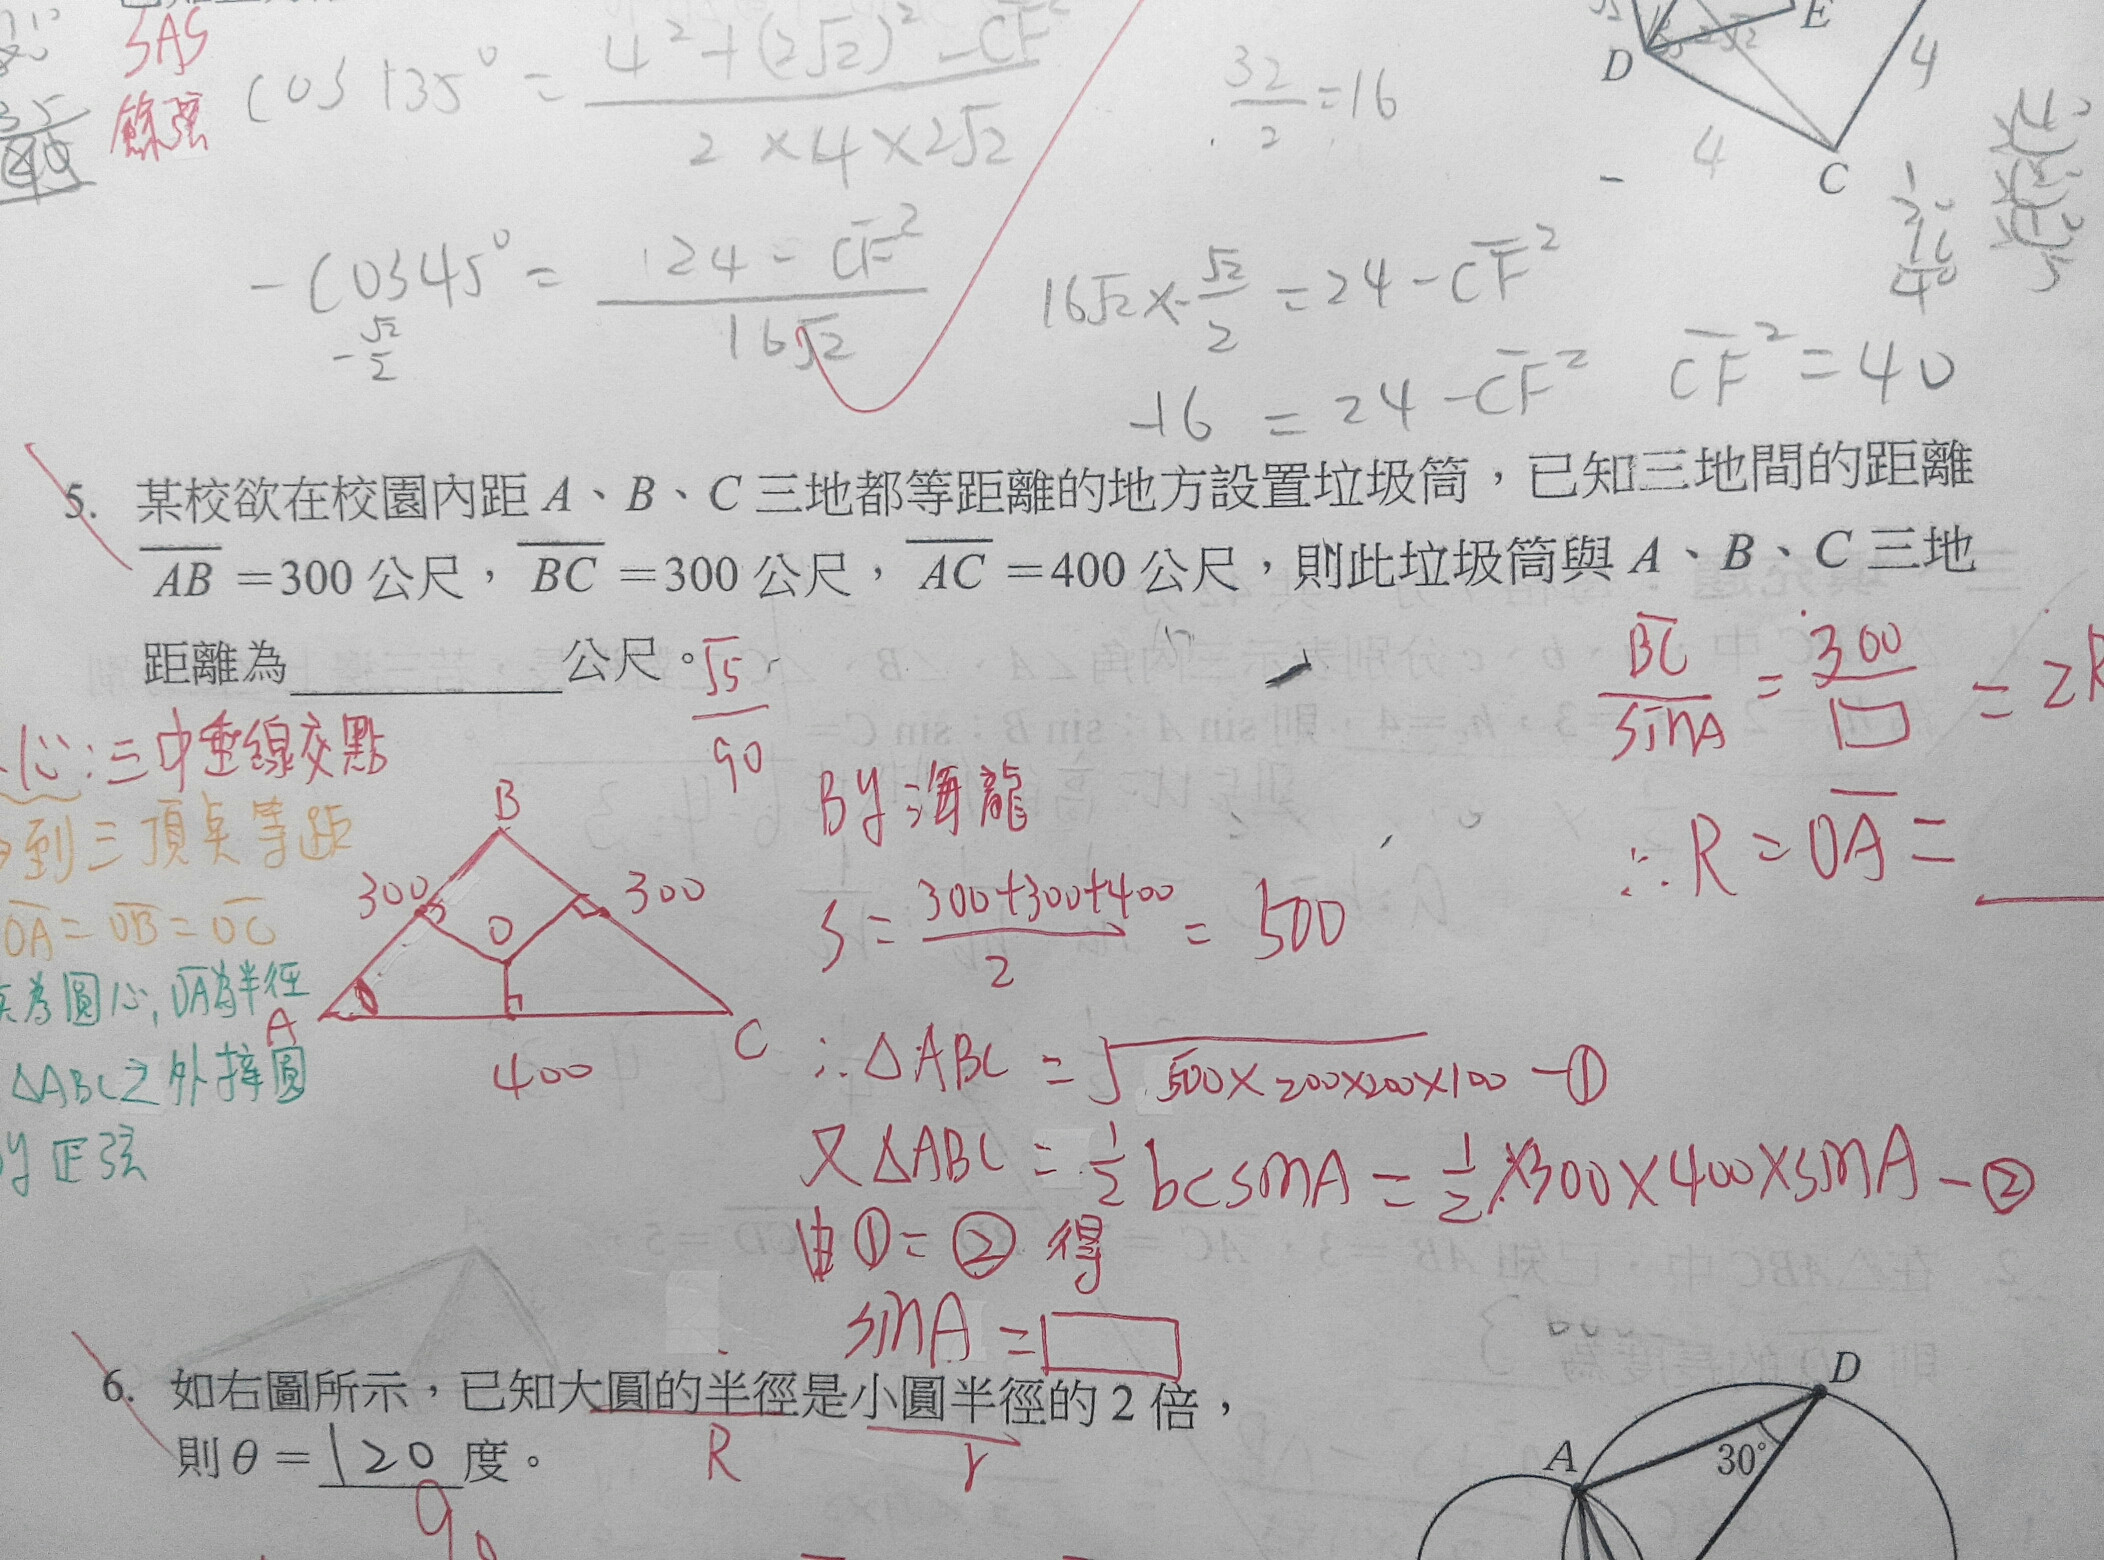 SAS
餘弦
cos 135° = (4² + (2√2)² − CF²) / (2 × 4 × 2√2)
32/2 = 16
D
E
4
4
C
−cos45° = (24 − CF²) / 16√2
−√2/2
16√2 × −√2/2 = 24 − CF²
−16 = 24 − CF²
CF² = 40
5. 某校欲在校園內距 A、B、C 三地都等距離的地方設置垃圾筒，已知三地間的距離
AB =300 公尺，BC =300 公尺，AC =400 公尺，則此垃圾筒與 A、B、C 三地
距離為 公尺。
√5/90
BC/sinA = 300/□ = 2R
∴ R = OA =
心:三中垂線交點
到三頂點等距
OA = OB = OC
為圓心, OA為半徑
△ABC之外接圓
by 正弦
B
300
300
O
A
C
400
By 海龍
S = (300+300+400)/2 = 500
∴ △ABC = √(500×200×200×100) −①
又 △ABC = 1/2 bc sinA = 1/2 ×300×400×sinA −②
由 ① = ② 得
sinA = □
6. 如右圖所示，已知大圓的半徑是小圓半徑的 2 倍，
R
r
則 θ = 120 度。
90
D
A
30°